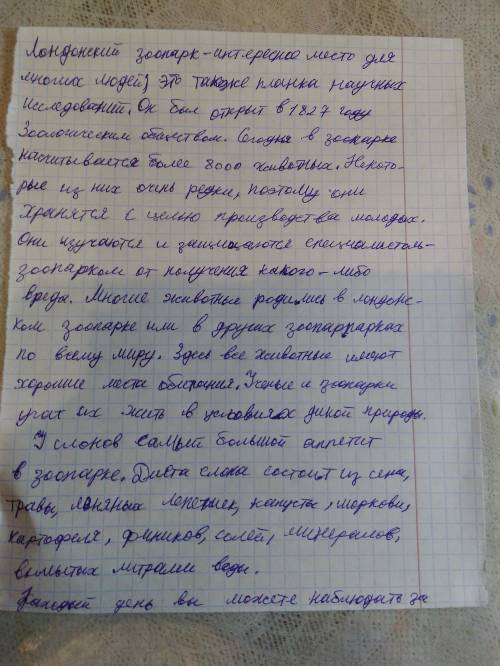 Лондонский зоопарк - интересное место для
многих людей, это также планка научных
исследований. Он был открыт в 1827 году
Зоологическим обществом. Сегодня в зоопарке
насчитывается более 8000 животных. Некото-
рые из них очень редки, поэтому они
хранятся с целью производства молодых.
Они изучаются и защищаются специалистом-
зоопарком от получения какого-либо
вреда. Многие животные родились в лондонс-
ком зоопарке или в других зоопаррарках
по всему миру. Здесь все животные имеют
хорошие места обитания. Ученые и зоопарки
учат их жить в условиях дикой природы.
У слонов самый большой аппетит
в зоопарке. Диета слона состоит из сена,
травы, льняных лепешек, капусты, моркови,
картофеля, фиников, солей, минералов,
вымытых литрами воды.
Каждый день вы можете наблюдать за